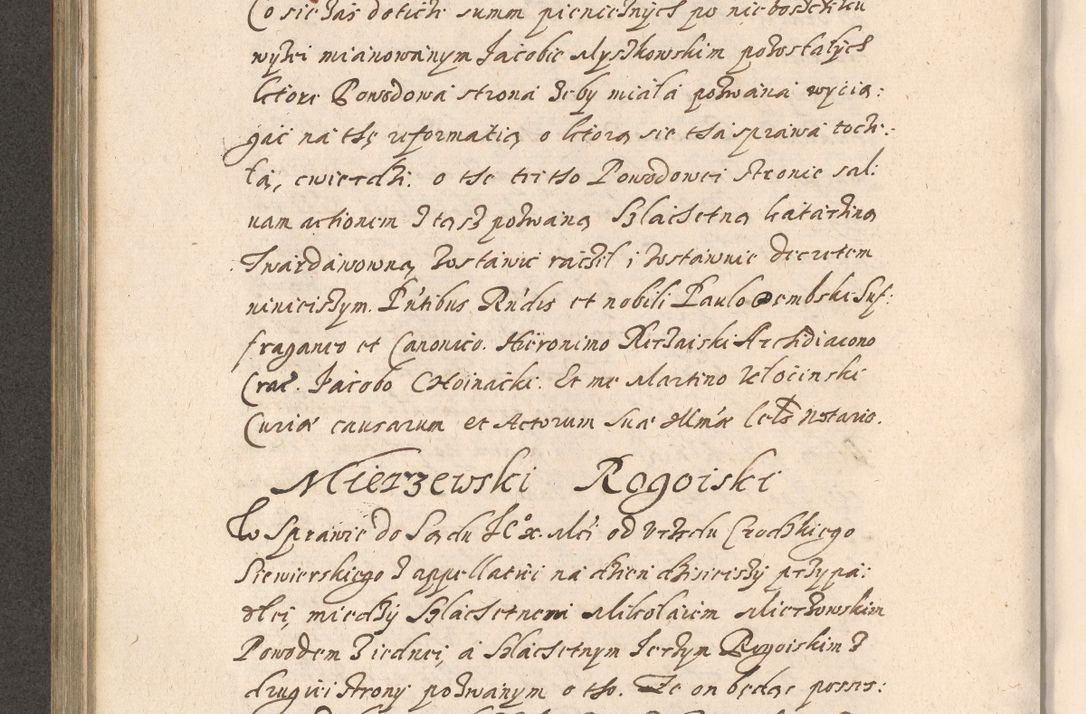 Co się zaś dotich summ pieniężnych po nieboszczyku
wyżei mianowanym Jacobie Myszkowskim pozostałych
ktore Powodowa strona żeby miała pozwana wycią:
gać na thę reformatią o ktorą się tha sprawa toczi:
ła, cwierdzi. o thę tri tho Powodowei stronie sal:
uam actionem z tąsz pozwaną Szlachetną Katarziną
Twardawowną zostawić raczeł i zostawuie decretem
ninieiszym. Pntibus Rndis et nobili Paulo Dembski Suf:
fraganeo et Canonico. Hieronimo Archidiacono
Crac. Jacobo Choinacki. Et me Martino Kłocinski
Curiæ causarum et Actorum Suæ Illmæ Cels Notario.
Mierzewski Rogoiski
W Sprawie do Sądu od Vrzędu Grodzkiego
Siewierskiego z appellatiei na dzien dzisieiszy przypa:
dłei, miedzy Szlachetnem Mikołaiem Mierzowskim
Powodem z iednei, a Szlachetnym Jerzym Rogoiskim z
drugiei strony pozwanym o tho. Ze on będąc posses: